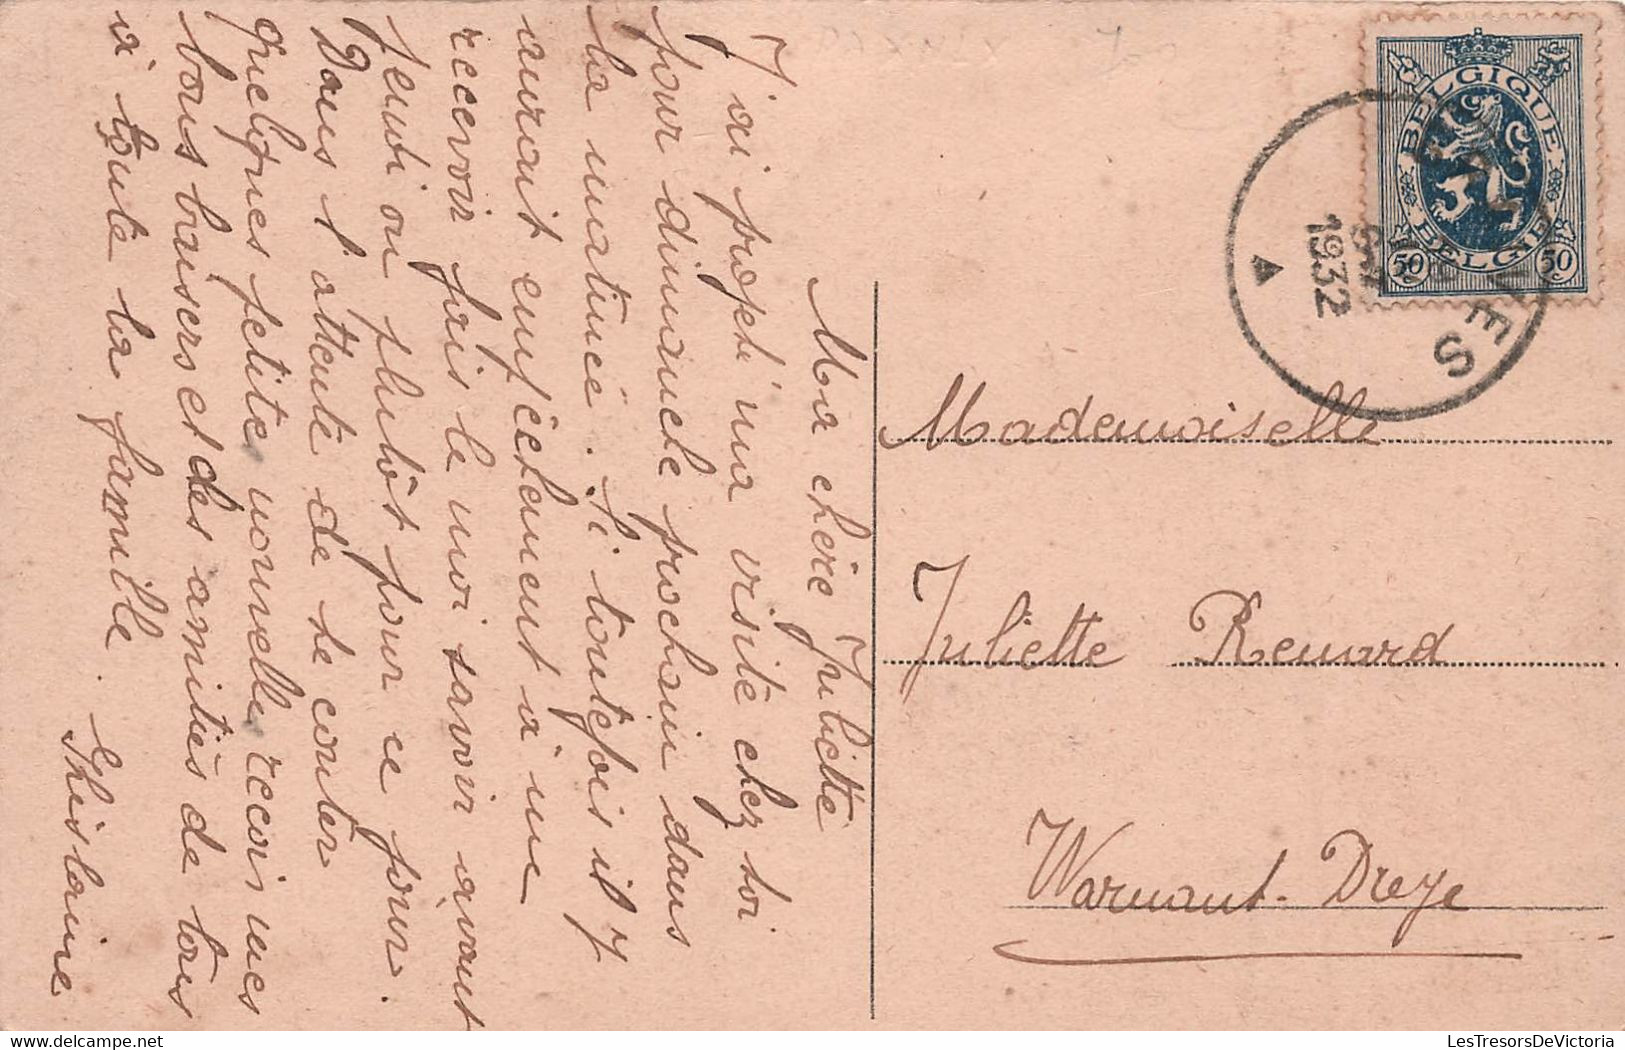 Ma chère Juliette
J'ai projeté ma visite chez toi
pour dimanche prochain dans
la matinée. Si toutefois il y
aurait empêchement à me
recevoir fais le moi savoir avant
jeudi ou plutôt pour ce jour.
Dans l'attente de te conter
quelques petite nouvelle recois mes
bons baisers et des amitiés de tous
à toute la famille.
Ghislaine
BELGIQUE
BELGIË
50c
50c
1932
Mademoiselle
Juliette Renard
Warnant-Dreye
LesTresorsDeVictoria